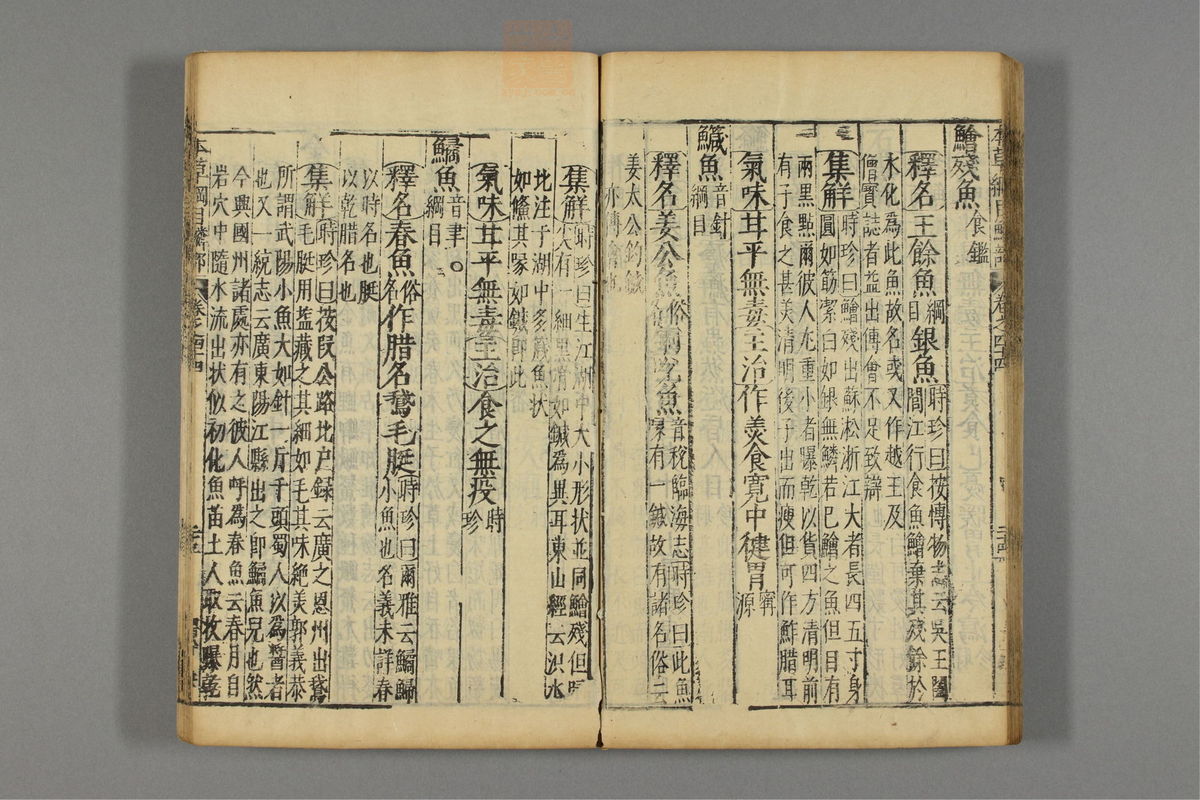 鱠殘魚食鑑
釋名王餘魚綱目銀魚時珍曰按博物志云吳王闔
閭江行食魚鱠棄其殘餘於
水化為此魚故名或又作越王及
僧寳誌者益出傳會不足致辯
集解時珍曰鱠殘出蘇淞浙江大者長四五寸身
圓如筯潔白如銀無鱗若已鱠之魚但目有
兩黑點爾彼人尤重小者曝乾以貨四方清明前
有子食之甚美清明後子出而瘦但可作鮓腊耳
氣味甘平無毒主治作羮食寛中健胃甯源
鱵魚音針綱目
釋名姜公魚俗名銅吮魚音稅臨海志時珍曰此魚
喙有一鍼故有諸名俗云
姜太公釣鍼
亦傅會也
集解時珍曰生江湖中大小形状並同鱠殘但喙
尖有一細黑骨如鍼為異耳東山經云沢水
北注于湖中多箴魚状
如鯈其喙如鍼即此
氣味甘平無毒主治食之無疫時珍
鱊魚音聿綱目
釋名春魚俗名作腊名鵝毛脡時珍曰爾雅云鱊鯞
小魚也名義未詳春
以時名也脡
以乾腊名也
集解時珍曰按段公路北户録云廣之恩州出鵞
毛脡用盐藏之其細如毛其味絶美郭義恭
所謂武陽小魚大如針一斤千頭蜀人以為醤者
也又一統志云廣東陽江縣出之即鱊魚兒也然
今興國州諸處亦有之彼人呼為春魚云春月自
岩穴中隨水流出状似初化魚苗土人取收曝乾
本草綱目鱗部
卷之四十四